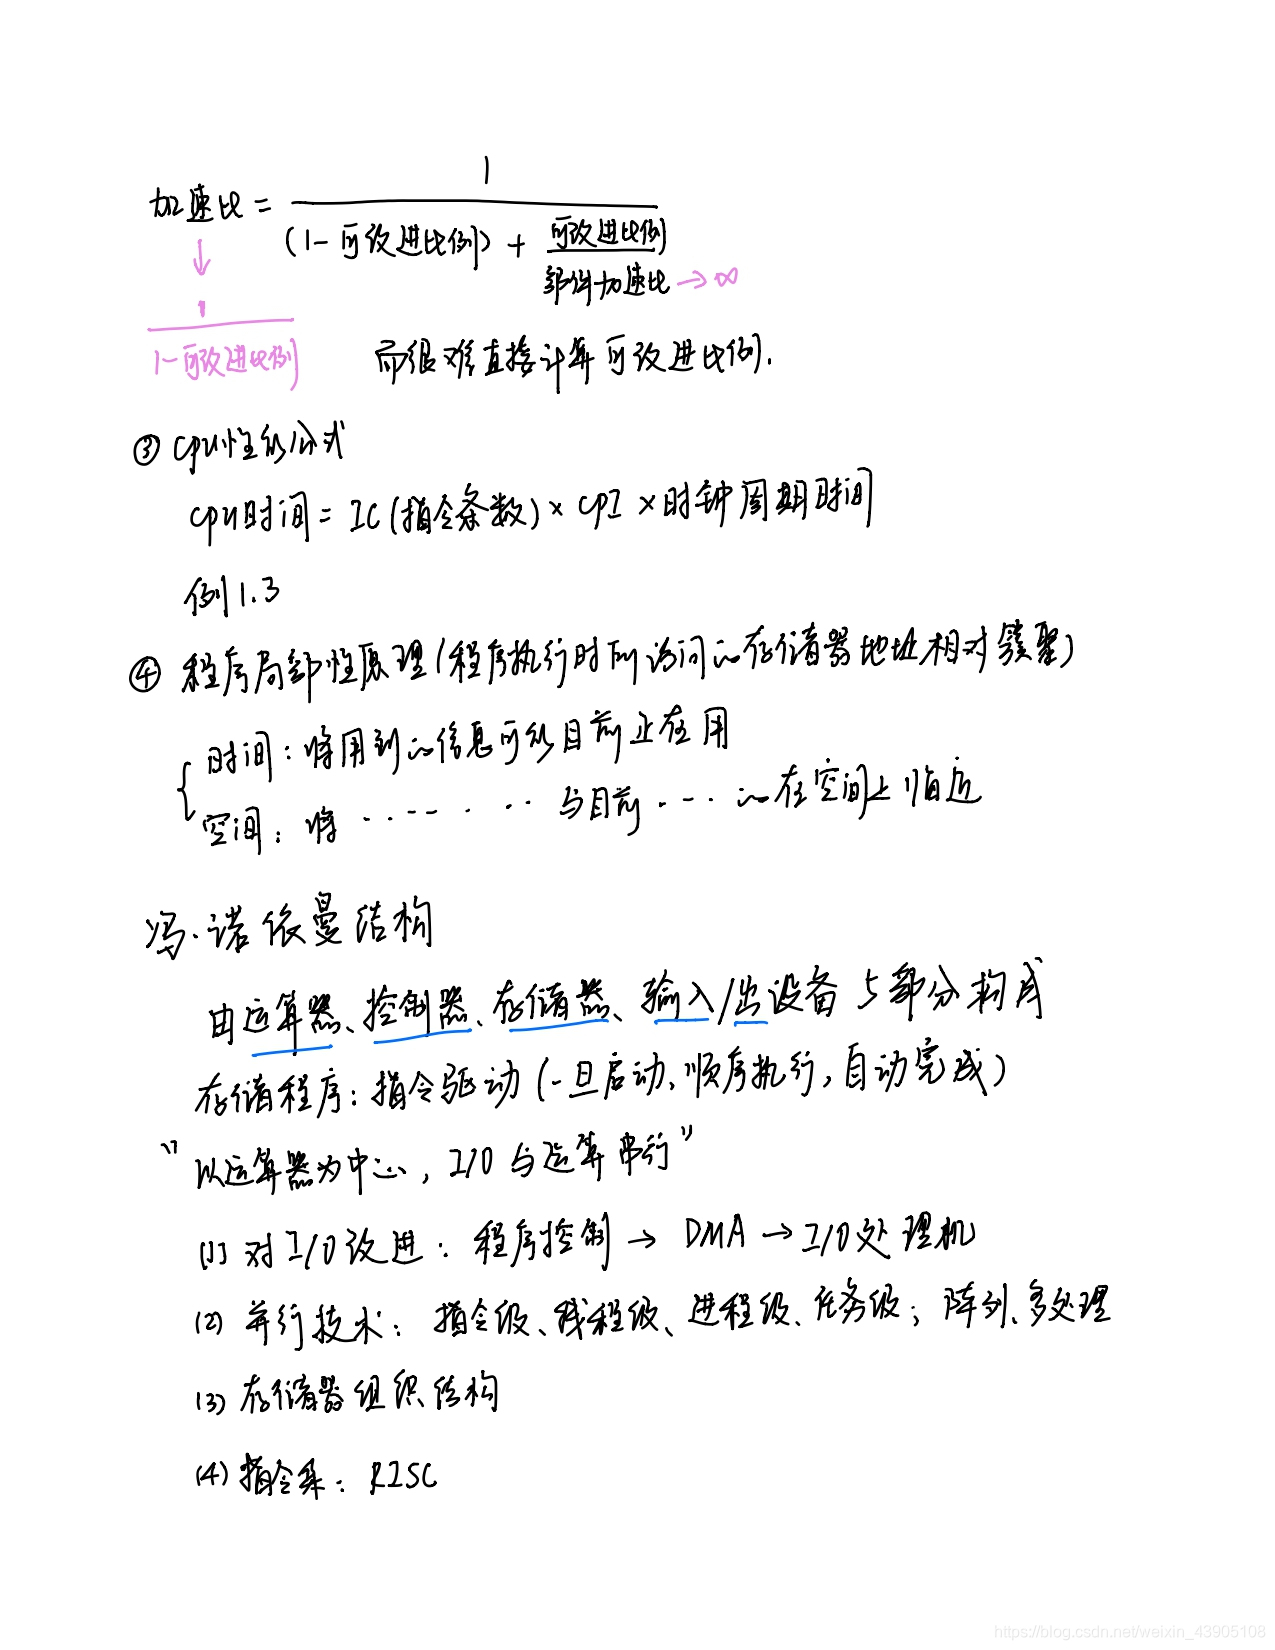 1
加速比 = (1-可改进比例) + 可改进比例
部件加速比 → ∞
↓
1
1-可改进比例
而很难直接计算可改进比例.
③ CPU性能公式
CPU时间 = IC(指令条数) × CPI × 时钟周期时间
例1.3
④ 程序局部性原理(程序执行时所访问的存储器地址相对簇聚)
时间: 将用到的信息可能目前正在用
空间: 将 ········ 与目前 ···· 的在空间上临近
冯·诺依曼结构
由运算器、控制器、存储器、输入/出设备 5部分构成
存储程序: 指令驱动 (一旦启动, 顺序执行, 自动完成)
"以运算器为中心, I/O与运算串行"
(1) 对I/O改进: 程序控制 → DMA → I/O处理机
(2) 并行技术: 指令级、线程级、进程级、任务级; 阵列、多处理
(3) 存储器组织结构
(4) 指令集: RISC
https://blog.csdn.net/weixin_43905108